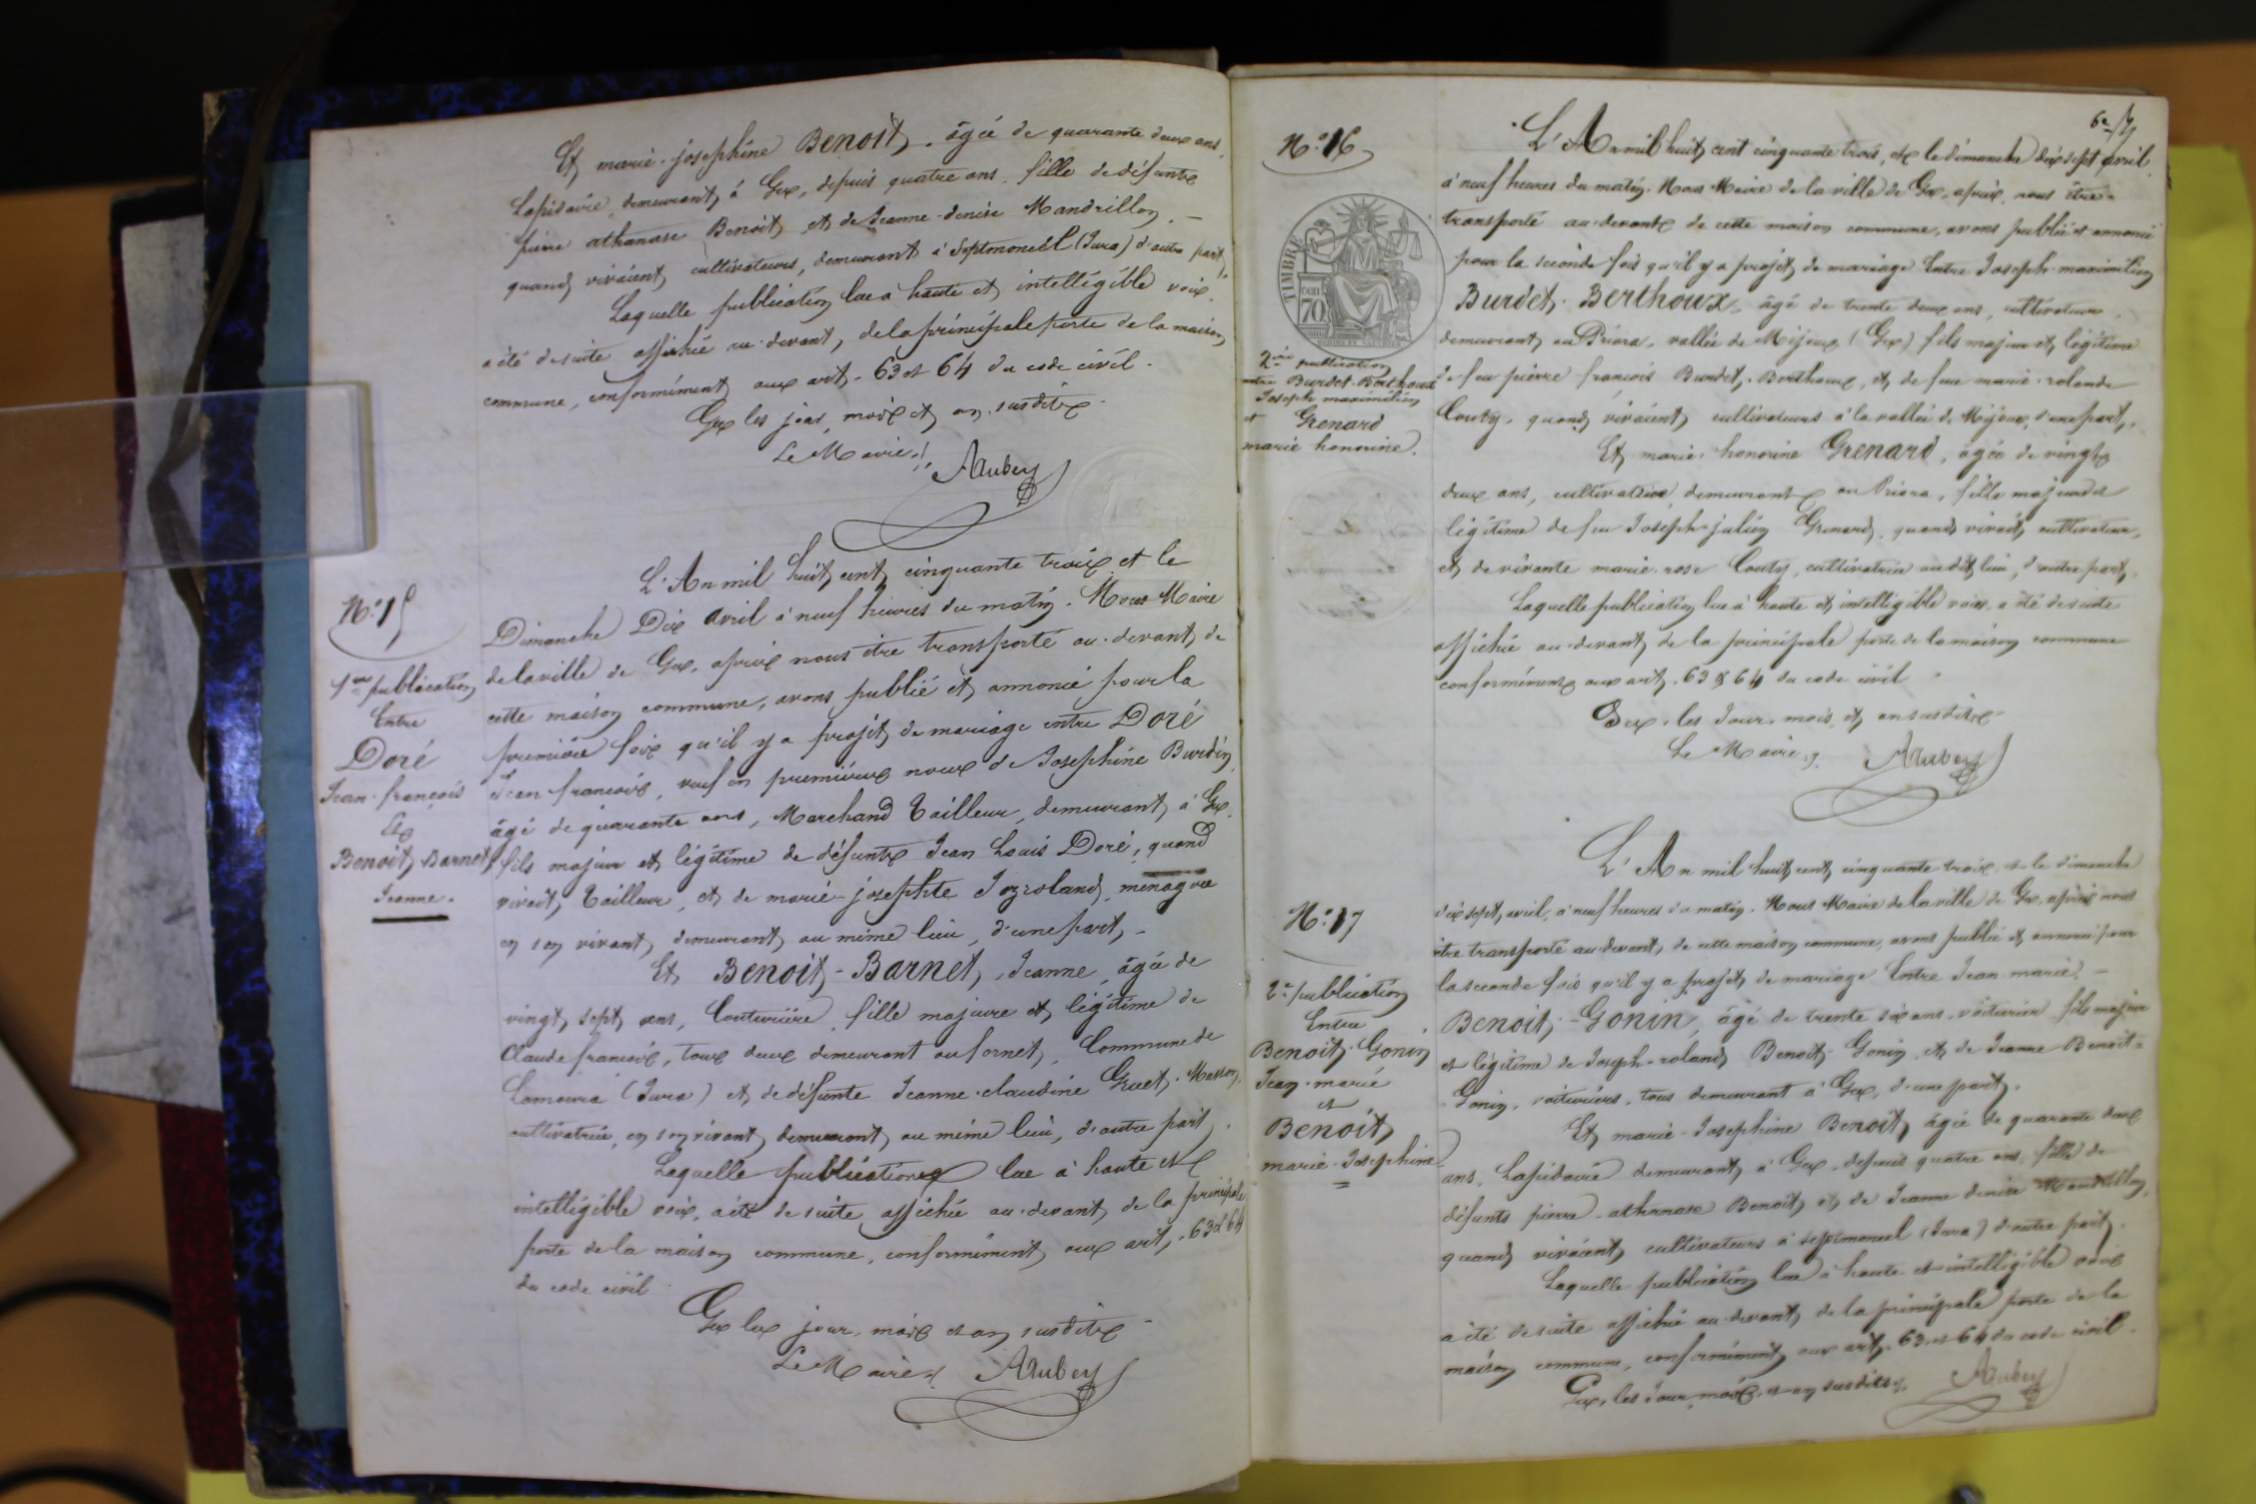 Et marie-josephine Benoit, âgée de quarante deux ans,
Lapidaire, demeurant à Gex, depuis quatre ans, fille de défunts
pierre athanase Benoit et de Jeanne-denise Mandrillon, —
quand vivaient cultivateurs, demeurant à Septmoncel (Jura) d'autre part,
Laquelle publication lue à haute et intelligible voix,
a été de suite affichée au-devant, de la principale porte de la maison
commune, conformément aux art. 63 et 64 du code civil.
Gex les jour, mois et an susdits.
Le Maire,
AAubery
N.° 15
1ère publication
Entre
Doré
Jean-françois
Et
Benoit-Barnet
Jeanne.
L'An mil huit cent cinquante trois et le
Dimanche Dix avril à neuf heures du matin. Nous Maire
de la ville de Gex, après nous être transporté au-devant de
cette maison commune, avons publié et annoncé pour la
première fois qu'il y a projet de mariage entre Doré
Jean françois, veuf en premières noces de Josephine Burdin,
âgé de quarante ans, Marchand Tailleur, demeurant à Gex,
fils majeur et légitime de défunts Jean Louis Doré, quand
vivait, Tailleur, et de marie-josephte Jozroland, ménagère
en son vivant, demeurant au même lieu, d'une part, -
Et Benoit-Barnet, Jeanne, âgée de
vingt sept ans, Couturière, fille majeure et légitime de
Claude françois, tous deux demeurant au fornet, Commune de
Lamoura (Jura) et de défunte Jeanne-claudine Gruet-Masson,
cultivatrice, en son vivant demeurant au même lieu, d'autre part.
Laquelle publication lue à haute et
intelligible voix, a été de suite affichée au-devant, de la principale
porte de la maison commune, conformément aux art. 63 et 64
du code civil
Gex les jour, mois et an susdits
Le Maire
AAubery
N.° 16
TIMBRE
CENT
70
2me publication
entre Burdet-Berthoux
Joseph maximilien
et
Grenard
marie honorine.
L'An mil huit cent cinquante trois, et le dimanche dix sept avril,
à neuf heures du matin. Nous Maire de la ville de Gex, après nous être
transporté au-devant de cette maison commune, avons publié et annoncé
pour la seconde fois qu'il y a projet de mariage Entre Joseph-maximilien
Burdet-Berthoux, âgé de trente deux ans, cultivateur,
demeurant au Priora, vallée de Mijoux (Gex) fils majeur et légitime
de feu pierre françois Burdet-Berthoux, et de feue marie-rolande
Couty, quand vivaient cultivateurs à la vallée de Mijoux, d'une part,
Et marie-honorine Grenard, âgée de vingt
deux ans, cultivatrice, demeurant au Priora, fille majeure et
légitime de feu Joseph-julien Grenard, quand vivait, cultivateur,
et de vivante marie-rose Couty, cultivatrice au dit lieu, d'autre part,
Laquelle publication lue à haute et intelligible voix, a été de suite
affichée au-devant de la principale porte de la maison commune
conformément aux art. 63 & 64 du code civil
Gex, les Jour, mois, et an susdits
Le Maire,
AAubery
N.° 17
2e publication
Entre
Benoit-Gonin
Jean-marie
et
Benoit
marie-Josephine
L'An mil huit cent cinquante trois, et le dimanche
dix sept, avril, à neuf heures du matin. Nous Maire de la ville de Gex, après nous
être transporté au-devant, de cette maison commune, avons publié et annoncé pour
la seconde fois qu'il y a projet de mariage Entre Jean-marie —
Benoit-Gonin, âgé de trente six ans, voiturier, fils majeur
et légitime de Joseph-roland Benoit-Gonin, et de Jeanne Benoit-
Gonin, voituriers, tous demeurant à Gex, d'une part,
Et marie-Josephine Benoit, âgée de quarante deux
ans, Lapidaire demeurant à Gex, depuis quatre ans, fille de
défunts pierre-athanase Benoit et de Jeanne denise Mandrillon,
quand vivaient, cultivateurs à septmoncel (Jura) d'autre part,
Laquelle publication lue à haute et intelligible voix
a été de suite affichée au-devant, de la principale porte de la
maison commune, conformément aux art. 63 et 64 du code civil.
Gex, les Jour, mois, et an susdits.
AAubery